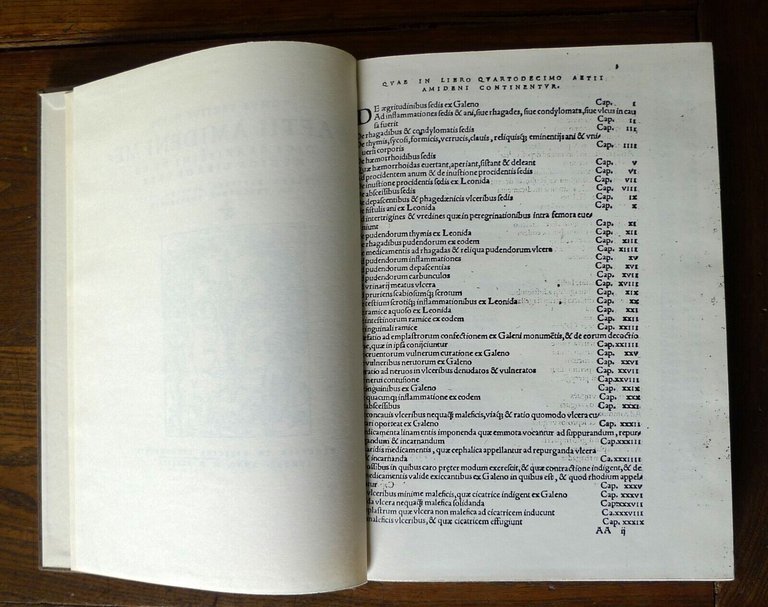 QVAE IN LIBRO QVARTODECIMO AETII
AMIDENI CONTINENTVR.
DE ægritudinibus sedis ex Galeno Cap. I
Ad inflammationes sedis & ani, siue rhagades, siue condylomata, siue vlcus in cau
sa fuerit Cap. II
De rhagadibus & condylomatis sedis Cap. III
De thymis, sycosi, formicis, verrucis, clauis, reliquisq; eminentijs ani & vniu
uersi corporis Cap. IIII
De hæmorrhoidibus sedis
Quæ hæmorrhoidas euertant, aperiant, sistant & deleant Cap. V
d procidentem anum & de inustione procidentis sedis Cap. VI
e inustione procidentis sedis ex Leonida Cap. VII
e abscessibus sedis Cap. VIII
e depascentibus & phagedænicis vlceribus sedis Cap. IX
e fistulis ani ex Leonida Cap. X
d intertrigines & vredines quæ in peregrinationibus intra femora eue
niunt Cap. XI
e pudendorum thymis ex Leonida Cap. XII
e rhagadibus pudendorum ex eodem Cap. XIII
e medicamentis ad rhagadas & reliqua pudendorum vlcera Cap. XIIII
d pudendorum inflammationes Cap. XV
d pudendorum depascentias Cap. XVI
d pudendorum carbunculos Cap. XVII
vrinarij meatus vlcera Cap. XVIII
d pruriens scabiosumq; scrotum Cap. XIX
e testium scrotiq; inflammationibus ex Leonida Cap. XX
ramice aquoso ex Leonida Cap. XXI
intestinorum ramice ex eodem Cap. XXII
inguinali ramice Cap. XXIII
efatio ad emplastrorum confectionem ex Galeni monumētis, & de eorum decoctio
ne, quæ in ipsa conijciuntur Cap. XXIIII
cruentorum vulnerum curatione ex Galeno Cap. XXV
vulneribus neruorum ex Galeno Cap. XXVI
ratio ad neruos in vlceribus denudatos & vulneratos Cap. XXVII
nerui contusione Cap. XXVIII
sanguinibus ex Galeno Cap. XXIX
quacumq; inflammatione ex eodem Cap. XXX
abscessibus Cap. XXXI
concauis vlceribus nequaq̃ maleficis, viaq; & ratio quomodo vlcera cu
rari oporteat ex Galeno Cap. XXXII
edicamenta linamentis imponenda quæ emmota vocantur ad suppurandum, repur
gandum & incarnandum Cap. XXXIII
aridis medicamentis, quæ cephalica appellantur ad repurganda vlcera
& incarnanda Ca. XXXIIII
ossibus in quibus caro præter modum excrescit, & quæ contractione indigent, & de
medicamentis valide exiccantibus ex Galeno in quibus est, & quod rhodium appella
tur Cap. XXXV
vlceribus minime maleficis, quæ cicatrice indigent ex Galeno Cap. XXXVI
da vlcera nequaq̃ malefica solidanda Cap. XXXVII
plastrum quæ vlcera non malefica ad cicatricem inducunt Ca. XXXVIII
maleficis vlceribus, & quæ cicatricem effugiunt Cap. XXXIX
AA ij